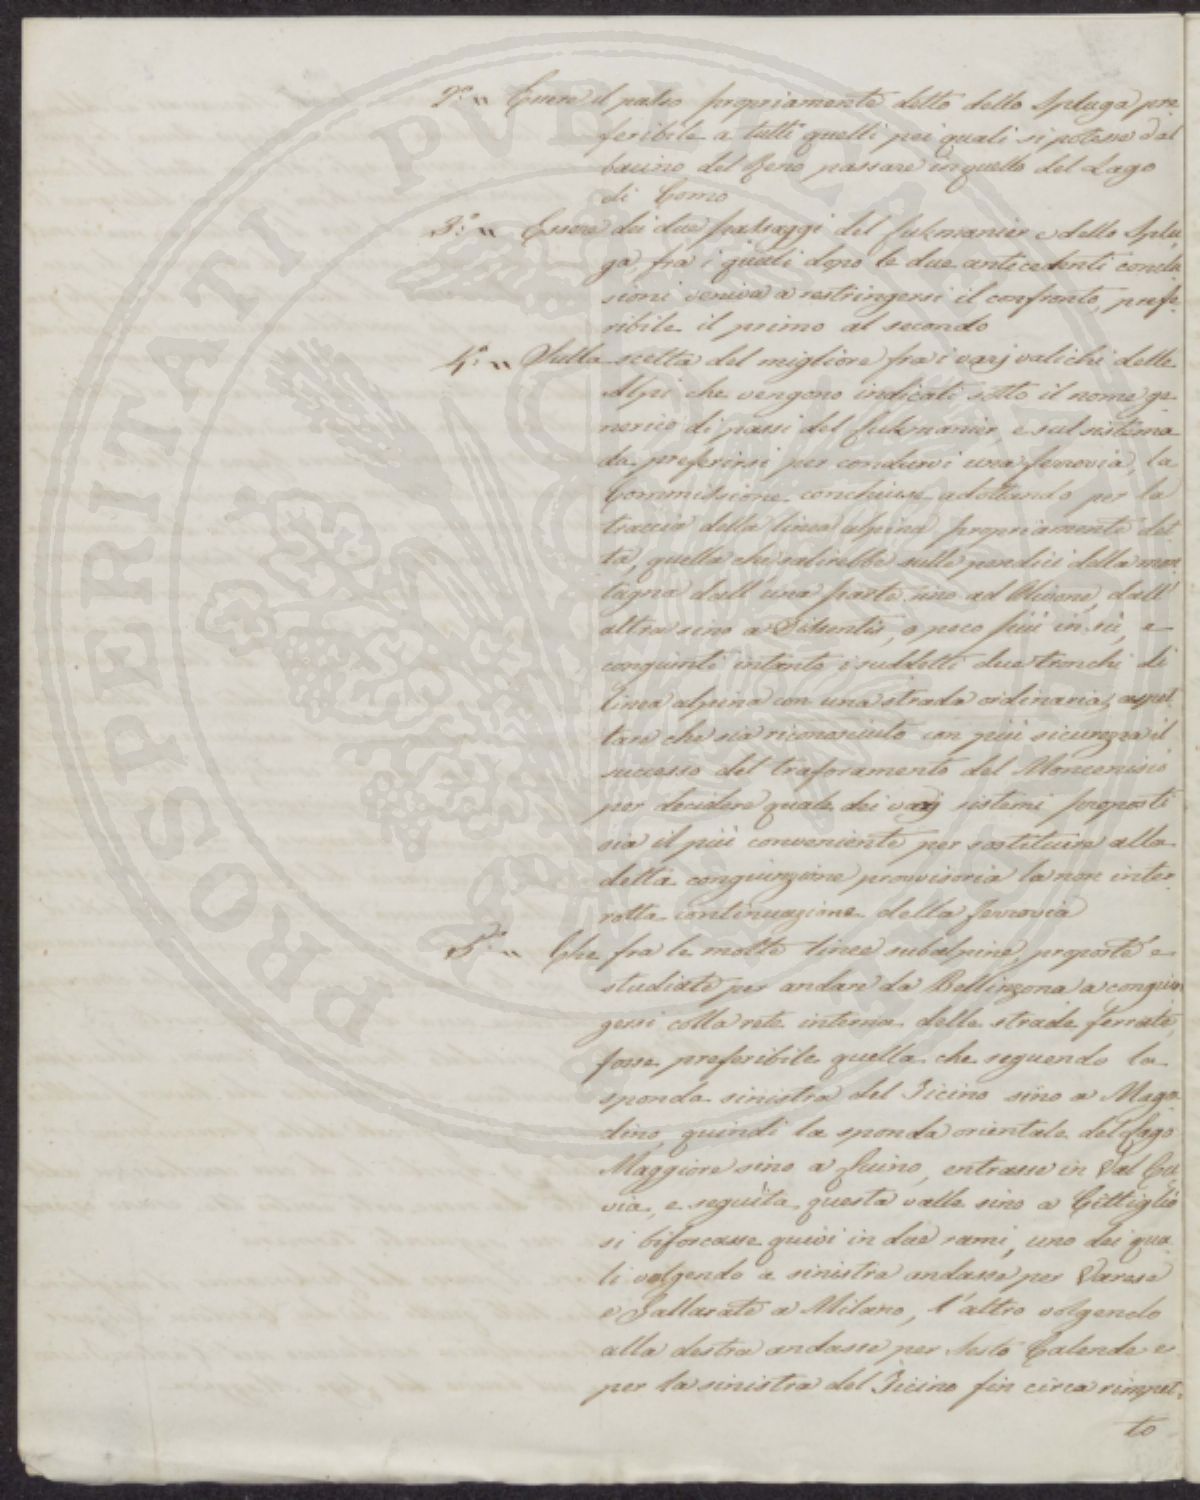 2.° „ Essere il passo propriamente detto dello Spluga pre
feribile a tutti quelli pei quali si potesse dal
bacino del Reno passare in quello del Lago
di Como
3.° „ Essere dei due passaggi del Lukmanier e dello Splu
ga, fra i quali dopo le due antecedenti conclu
sioni veniva a restringersi il confronto, prefe
ribile il primo al secondo
4.° „ Sulla scelta del migliore fra i varj valichi delle
Alpi che vengono indicati sotto il nome ge
nerico di passi del Lukmanier e sul sistema
da preferirsi per condurvi una ferrovia, la
Commissione conchiuse adottando per la
traccia della linea alpina propriamente det
ta, quella che salirebbe sulle pendici della mon
tagna dall'una parte sino ad Olivone, dall'
altra sino a Dissentis, o poco più in sù, e
congiunti intanto i suddetti due tronchi di
linea alpina con una strada ordinaria, aspet
tare che sia riconosciuto con più sicurezza il
successo del traforamento del Moncenisio
per decidere quale dei varj sistemi proposti
sia il più conveniente per sostituire alla
detta congiunzione provvisoria la non inter
rotta continuazione della ferrovia
5.° „ Che fra le molte linee subalpine proposte e
studiate per andare da Bellinzona a congiun
gersi colla rete interna delle strade ferrate,
fosse preferibile quella che seguendo la
sponda sinistra del Ticino sino a Maga
dino, quindi la sponda orientale del Lago
Maggiore sino a Luino, entrasse in Val Cu
via, e seguìta questa valle sino a Cittiglio
si biforcasse quivi in due rami, uno dei qua
li volgendo a sinistra andasse per Varese
e Gallarate a Milano, l'altro volgendo
alla destra andasse per Sesto Calende e
per la sinistra del Ticino fin circa rimpet-
to
PROSPERITATI PUBLICAE